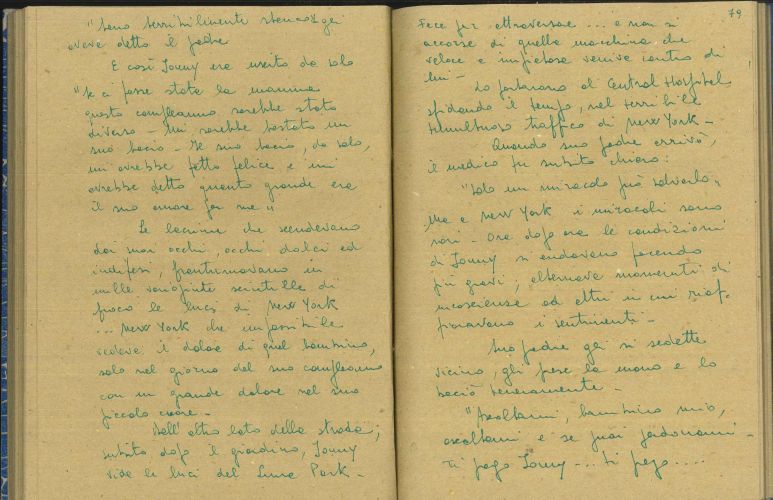 "Sono terribilmente stanco" gli
aveva detto il padre
E così Jonny era uscito da solo
"Se ci fosse stata la mamma
questo compleanno sarebbe stato
diverso - Mi sarebbe bastato un
suo bacio - Il suo bacio, da solo,
mi avrebbe fatto felice e mi
avrebbe detto quanto grande era
il suo amore per me"
Le lacrime che scendevano
dai suoi occhi, occhi dolci ed
indifesi, frantumavano in
mille variopinte scintille di
fuoco le luci di New York
... New York che impassibile
vedeva il dolore di quel bambino,
solo nel giorno del suo compleanno
con un grande dolore nel suo
piccolo cuore -
Dall'altro lato della strada,
subito dopo il giardino, Jonny
vide le luci del Luna Park -
79
Fece per attraversare ... e non si
accorse di quella macchina che
veloce e impietosa veniva contro di
lui -
Lo portarono al Central Hospital
sfidando il tempo, nel terribile
tumultuoso traffico di New York -
Quando suo padre arrivò,
il medico fu subito chiaro:
"Solo un miracolo può salvarlo",
Ma a New York i miracoli sono
rari - Ora dopo ora le condizioni
di Jonny si andavano facendo
più gravi, alternava momenti di
incoscienza ad altri in cui riaf-
fioravano i sentimenti -
Suo padre gli si sedette
vicino, gli prese la mano e lo
baciò teneramente -
"Ascoltami, bambino mio,
ascoltami e se puoi perdonami -
Ti prego Jonny ... ti prego ....